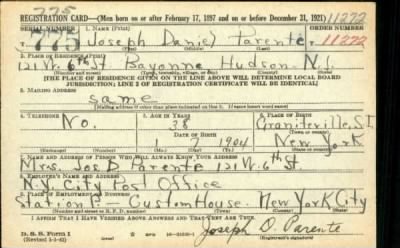 775
REGISTRATION CARD—(Men born on or after February 17, 1897 and on or before December 31, 1921) 11272
SERIAL NUMBER 1. NAME (Print) ORDER NUMBER
775 Joseph Daniel Parente 11272
(First) (Middle) (Last)
2. PLACE OF RESIDENCE (Print)
121 W. 6th St Bayonne Hudson N.J.
(Number and street) (Town, township, village, or city) (County) (State)
[THE PLACE OF RESIDENCE GIVEN ON THE LINE ABOVE WILL DETERMINE LOCAL BOARD
JURISDICTION; LINE 2 OF REGISTRATION CERTIFICATE WILL BE IDENTICAL]
3. MAILING ADDRESS
same
[Mailing address if other than place indicated on line 2. If same insert word same]
4. TELEPHONE 5. AGE IN YEARS 6. PLACE OF BIRTH
No. 38 Graniteville, S.I
DATE OF BIRTH (Town or county)
1904 New York
(Exchange) (Number) (Mo.) (Day) (Yr.) (State or country)
7. NAME AND ADDRESS OF PERSON WHO WILL ALWAYS KNOW YOUR ADDRESS
Mrs. Jos D Parente 121 W. 6th St
8. EMPLOYER'S NAME AND ADDRESS
N.Y. City Post Office
9. PLACE OF EMPLOYMENT OR BUSINESS
Station P - Custom House. New York City
(Number and street or R. F. D. number) (Town) (County) (State)
I AFFIRM THAT I HAVE VERIFIED ABOVE ANSWERS AND THAT THEY ARE TRUE.
D. S. S. Form 1
(Revised 1-1-42) Joseph D. Parente
(Registrant's signature)